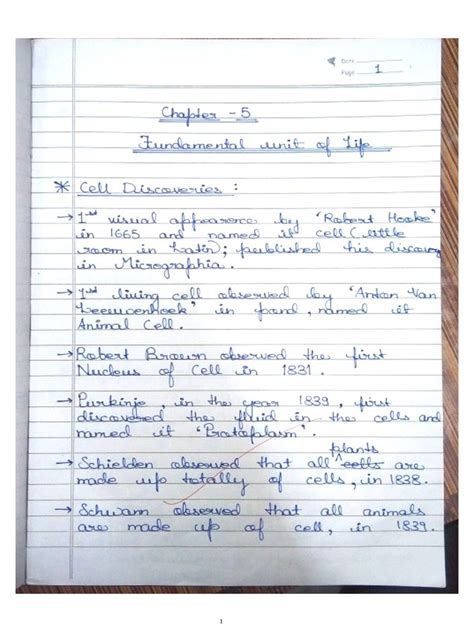 Date
Page 1
Chapter - 5
Fundamental unit of Life
* Cell Discoveries :
→ 1st visual appearence by 'Robert Hooke'
in 1665 and named it cell (little
room in Latin; published his discovery
in Micrographia.
→ 1st living cell observed by 'Anton Van
Leeuwenhoek' in pond, named it
Animal Cell.
→ Robert Brown observed the first
Nucleus of Cell in 1831.
→ Purkinje, in the year 1839, first
discovered the fluid in the cells and
named it 'Protoplasm'.
plants
→ Schielden observed that all cells are
made up totally of cells, in 1838.
→ Schwann observed that all animals
are made up of cell, in 1839.
1